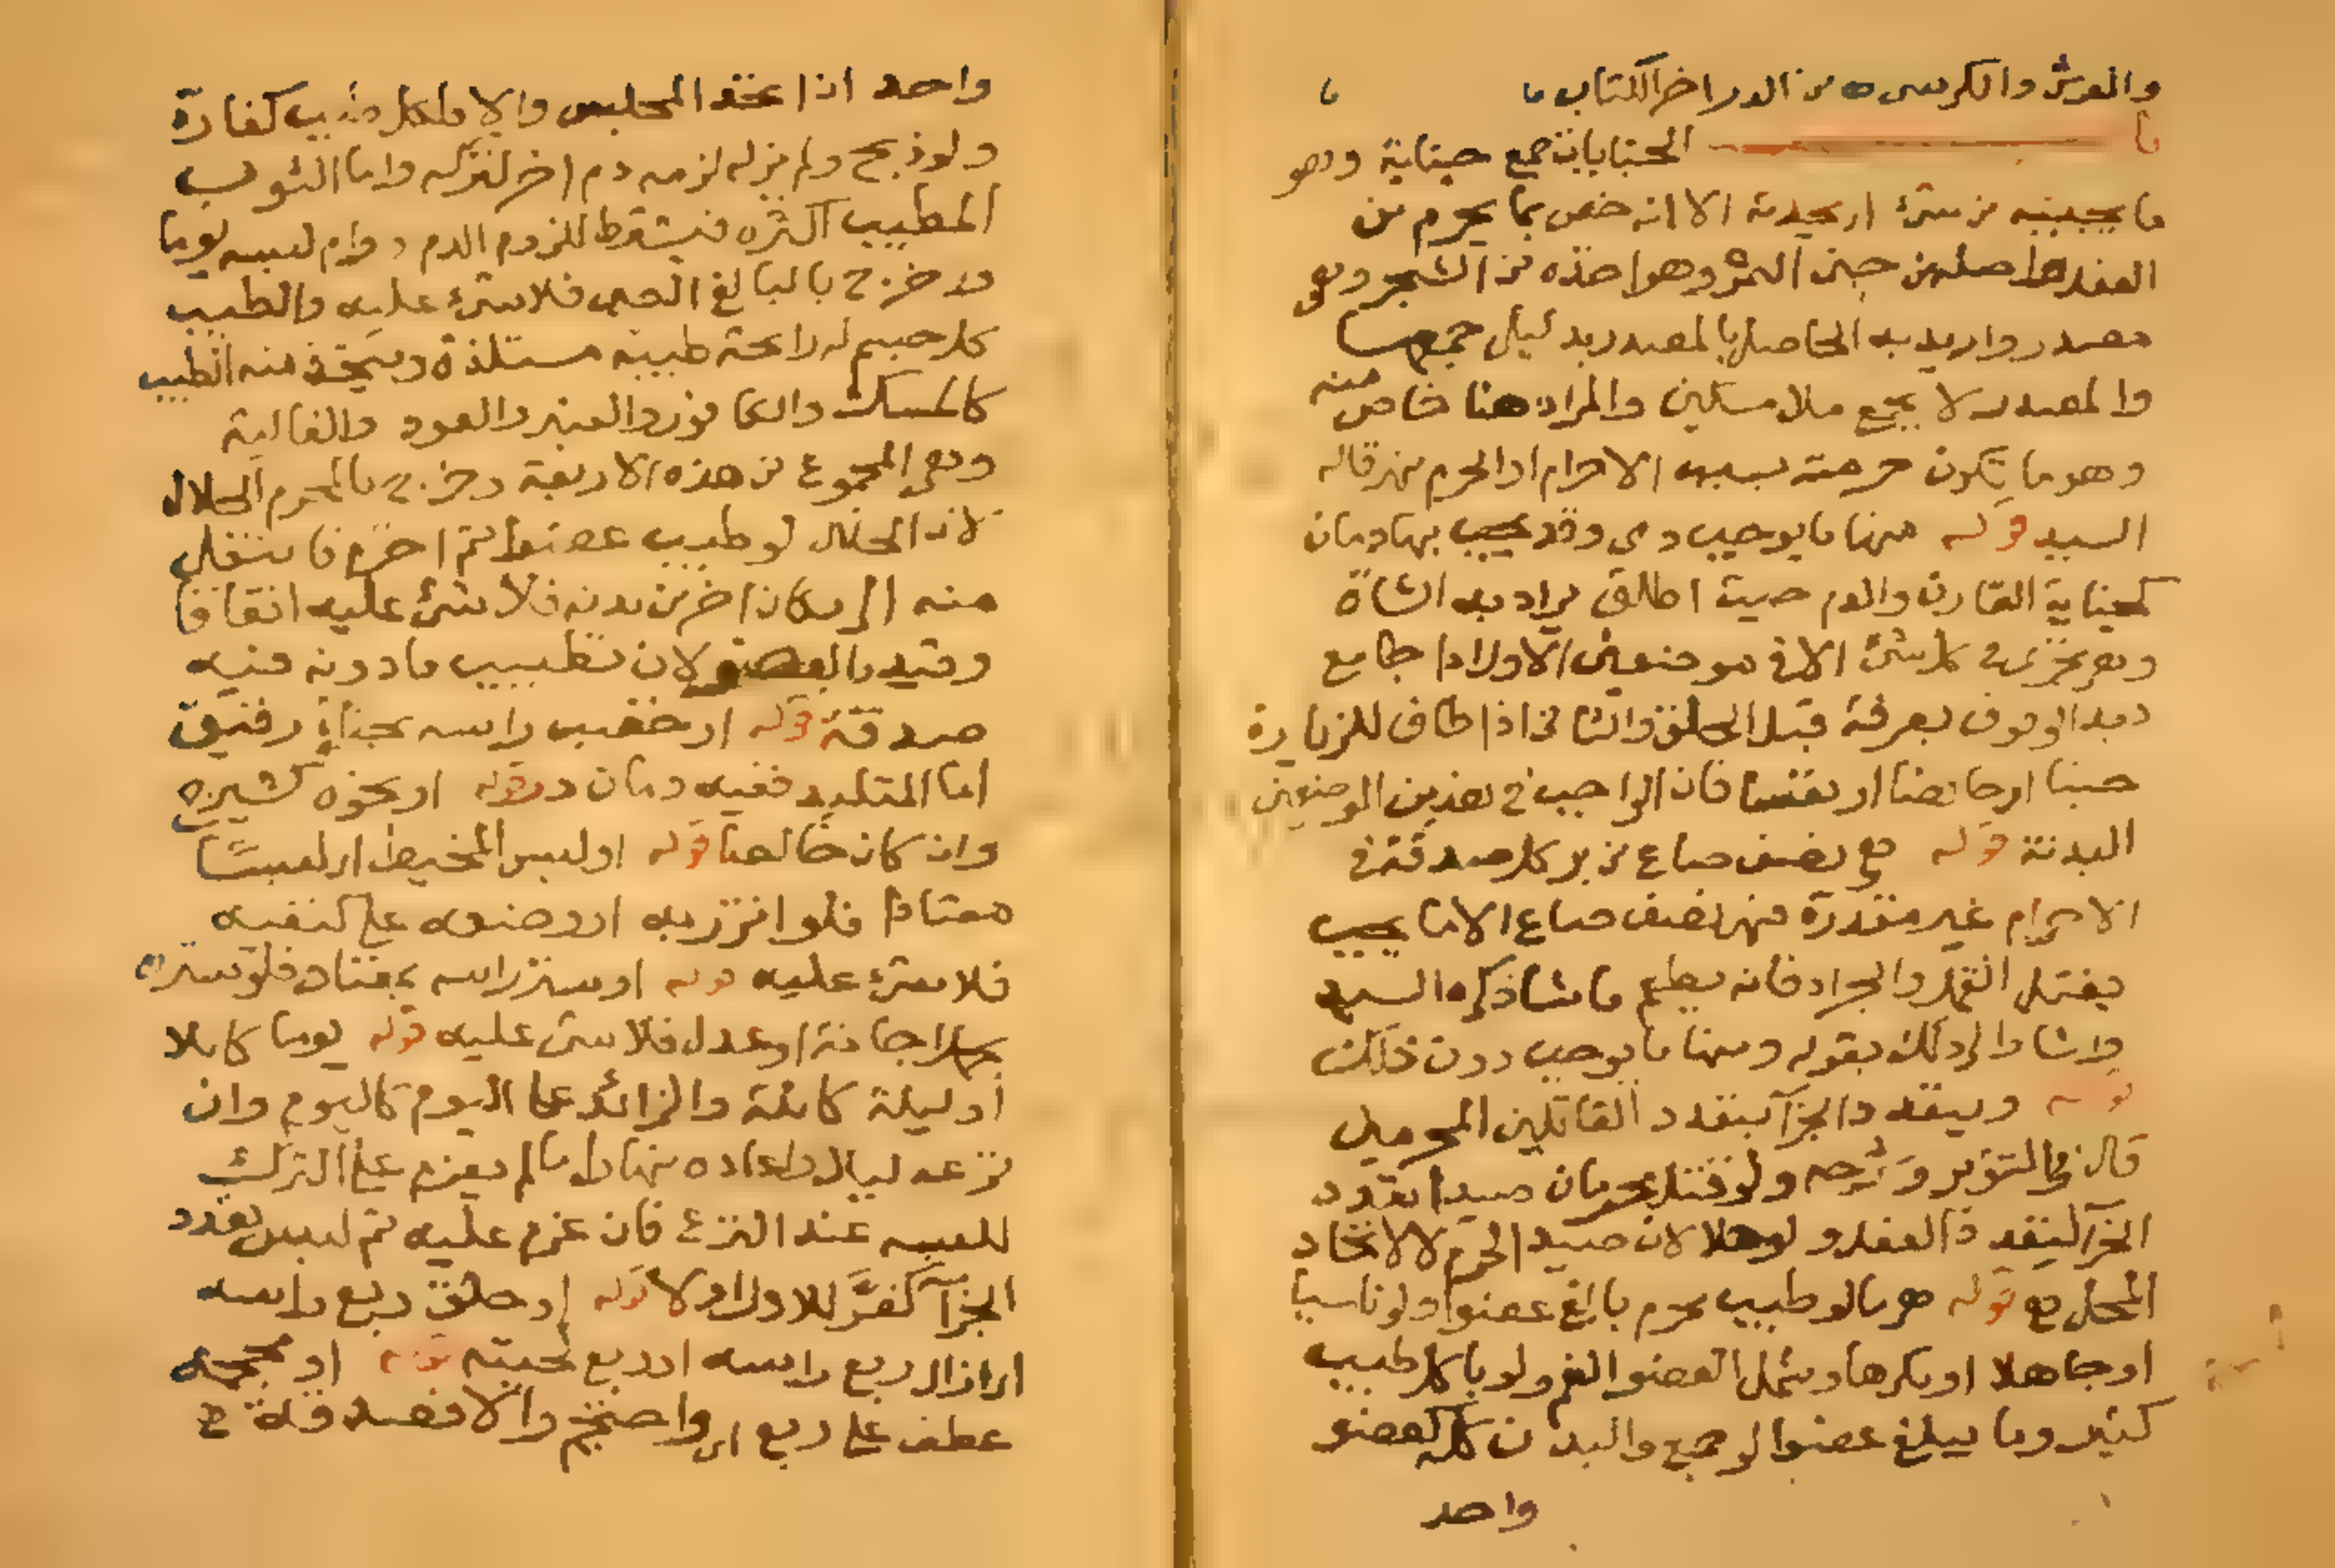 والعرش والكرسي ه من الدر اخر الكتاب
الجنايات جمع جناية وهو
ما يجنيه من شئ او يحدثه الا انه خص بما يحرم من
الفعل واصله من جني الثمر وهو اخذه من الشجر وهو
مصدر واريد به الحاصل بالمصدر بدليل جمعها
والمصدر لا يجمع ملا مسكين والمراد هنا خاص منه
وهو ما تكون حرمته بسبب الاحرام او الحرم نهر قاله
السيد قوله منها ما يوجب دم وقد يجب بها دمان
كجناية القارن والدم حيث اطلق يراد به الشاة
وهو يجزي في كل شئ الا في موضعين الاول اذا جامع
بعد الوقوف بعرفة قبل الحلق والثاني اذا طاف للزيارة
جنبا او حائضا او نفسا فان الواجب في هذين الموضعين
البدنة قوله نصف صاع من بر كل صدقة في
الاحرام غير مقدرة فهي نصف صاع الا ما يجب
بقتل القمل والجراد فانه يطعم ما شا ذكره السيد
واشار الى ذلك بقوله ومنها ما يوجب دون ذلك
قوله ويتعدد الجزآ بتعدد القاتلين المحرمين
قال في التنوير وشرحه ولو قتل محرمان صيدا تعدد
الجزآ لتعدد الفعل ولو حلالان صيد الحرم لا لاتحاد
المحل قوله هي ما لو طيب محرم بالغ عضوا ولو ناسيا
او جاهلا او مكرها وشمل العضو الفم ولو باكل طيب
كثير وما يبلغ عضوا لو جمع والبدن كله كعضو
واحد
واحد اذا اتحد المجلس والا فلكل طيب كفارة
ولو ذبح ولم يزله لزمه دم اخر لتركه واما الثوب
المطيب اكثره فيشترط للزوم الدم دوام لبسه يوما
وخرج بالبالغ الصبي فلا شئ عليه والطيب
كل جسم له رائحة طيبة مستلذة ويتخذ منه الطيب
كالمسك والكافور والعنبر والعود والغالية
وهي المجموع من هذه الاربعة وخرج بالمحرم الحلال
لان الحلال لو طيب عضوا ثم احرم فانتقل
منه الى مكان اخر من بدنه فلا شئ عليه اتفاقا
وقيد بالعضو لان تطييب ما دونه فيه
صدقة قوله او خضب راسه بحناء رقيق
اما المتلبد ففيه دمان قوله او نحوه كشيرج
وان كان خالصا قوله او لبس المخيط اي لبسا
معتادا فلو اتزر به او وضعه على كتفيه
فلا شئ عليه قوله او ستر راسه بمعتاد فلو ستره
بحمل اجانة او عدل فلا شئ عليه قوله يوما كاملا
او ليلة كاملة والزائد على اليوم كاليوم وان
نزعه ليلا واعاده نهارا ما لم يعزم على الترك
للبسه عند النزع فان عزم عليه ثم لبس تعدد
الجزآ كفر للاول او لا قوله او حلق ربع راسه
اي ازال ربع راسه او ربع لحيته قوله او محجمه
عطف على ربع اي واحتجم والا فصدقة